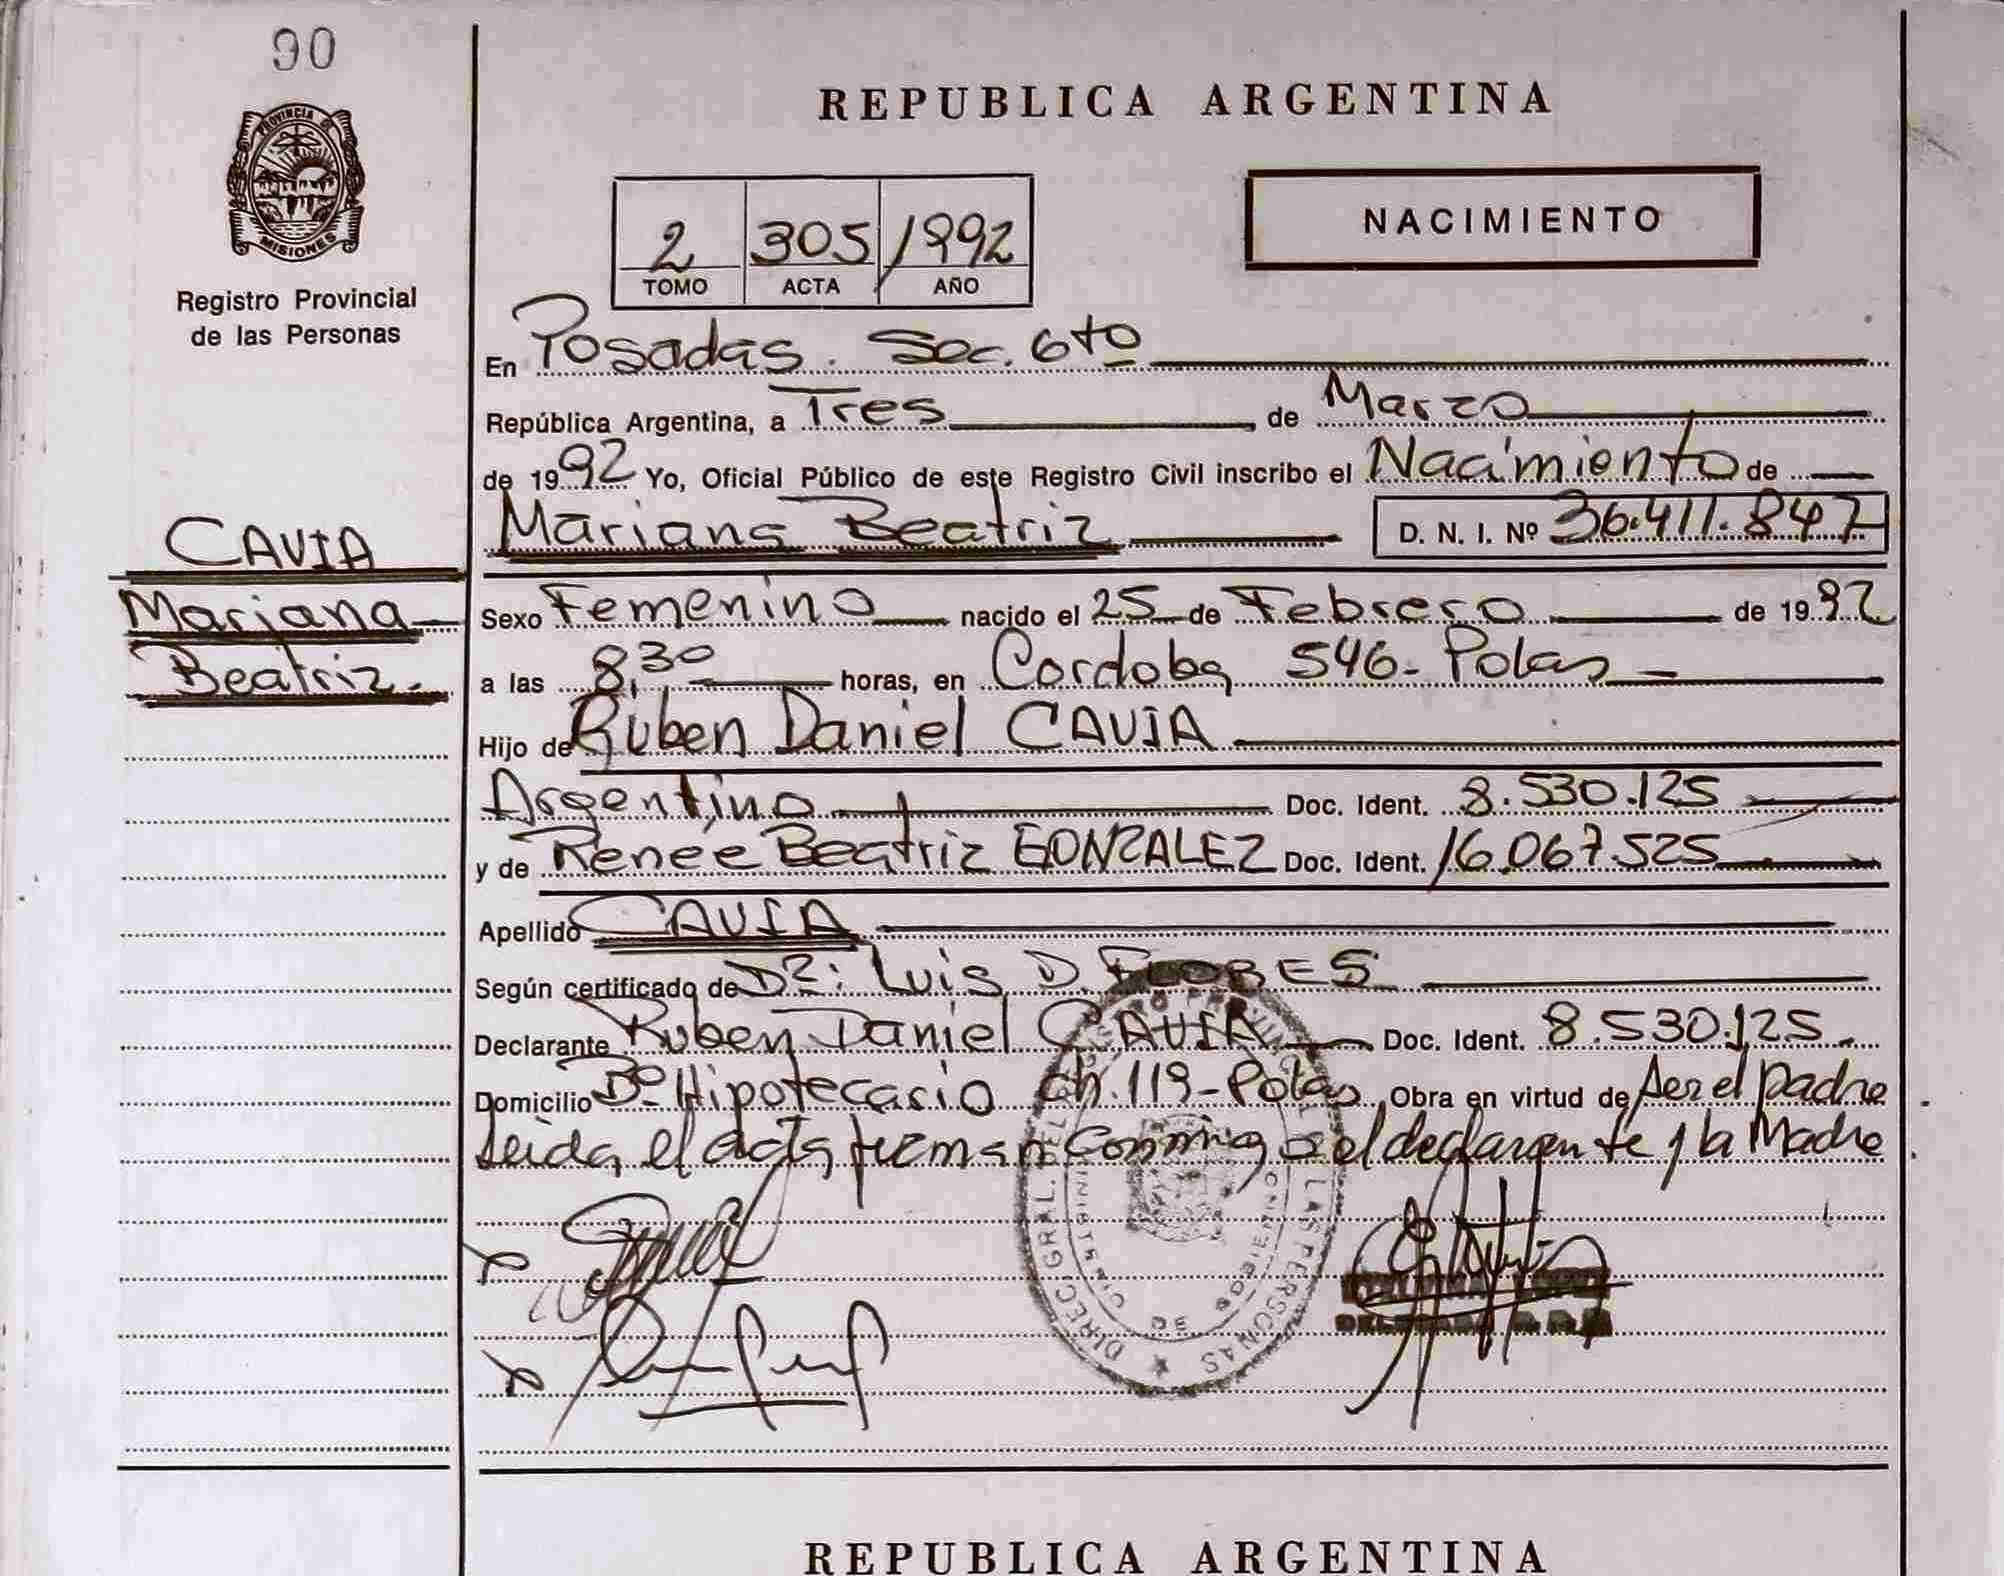 90
PROVINCIA DE
MISIONES
Registro Provincial
de las Personas
CAVIA
Mariana
Beatriz.
REPUBLICA ARGENTINA
2 305 1992
TOMO ACTA AÑO
NACIMIENTO
En Posadas. Sec. 6to
República Argentina, a Tres, de Marzo
de 1992 Yo, Oficial Público de este Registro Civil inscribo el Nacimiento de
Mariana Beatriz D. N. I. Nº 36.411.847
Sexo Femenino nacido el 25 de Febrero de 1992
a las 8,30 horas, en Cordoba 546-Polas
Hijo de Ruben Daniel CAVIA
Argentino Doc. Ident. 8.530.125
y de Renée Beatriz GONZALEZ Doc. Ident. 16.067.525
Apellido CAVIA
Según certificado de Dr: Luis D. FLORES
Declarante Ruben Daniel CAVIA Doc. Ident. 8.530.125
Domicilio Bº Hipotecario ch. 119-Polas Obra en virtud de ser el padre
Leida el acta firman conmigo el declarante y la Madre
DIREC. GRAL. DEL REGISTRO LAS PERSONAS
REPUBLICA ARGENTINA